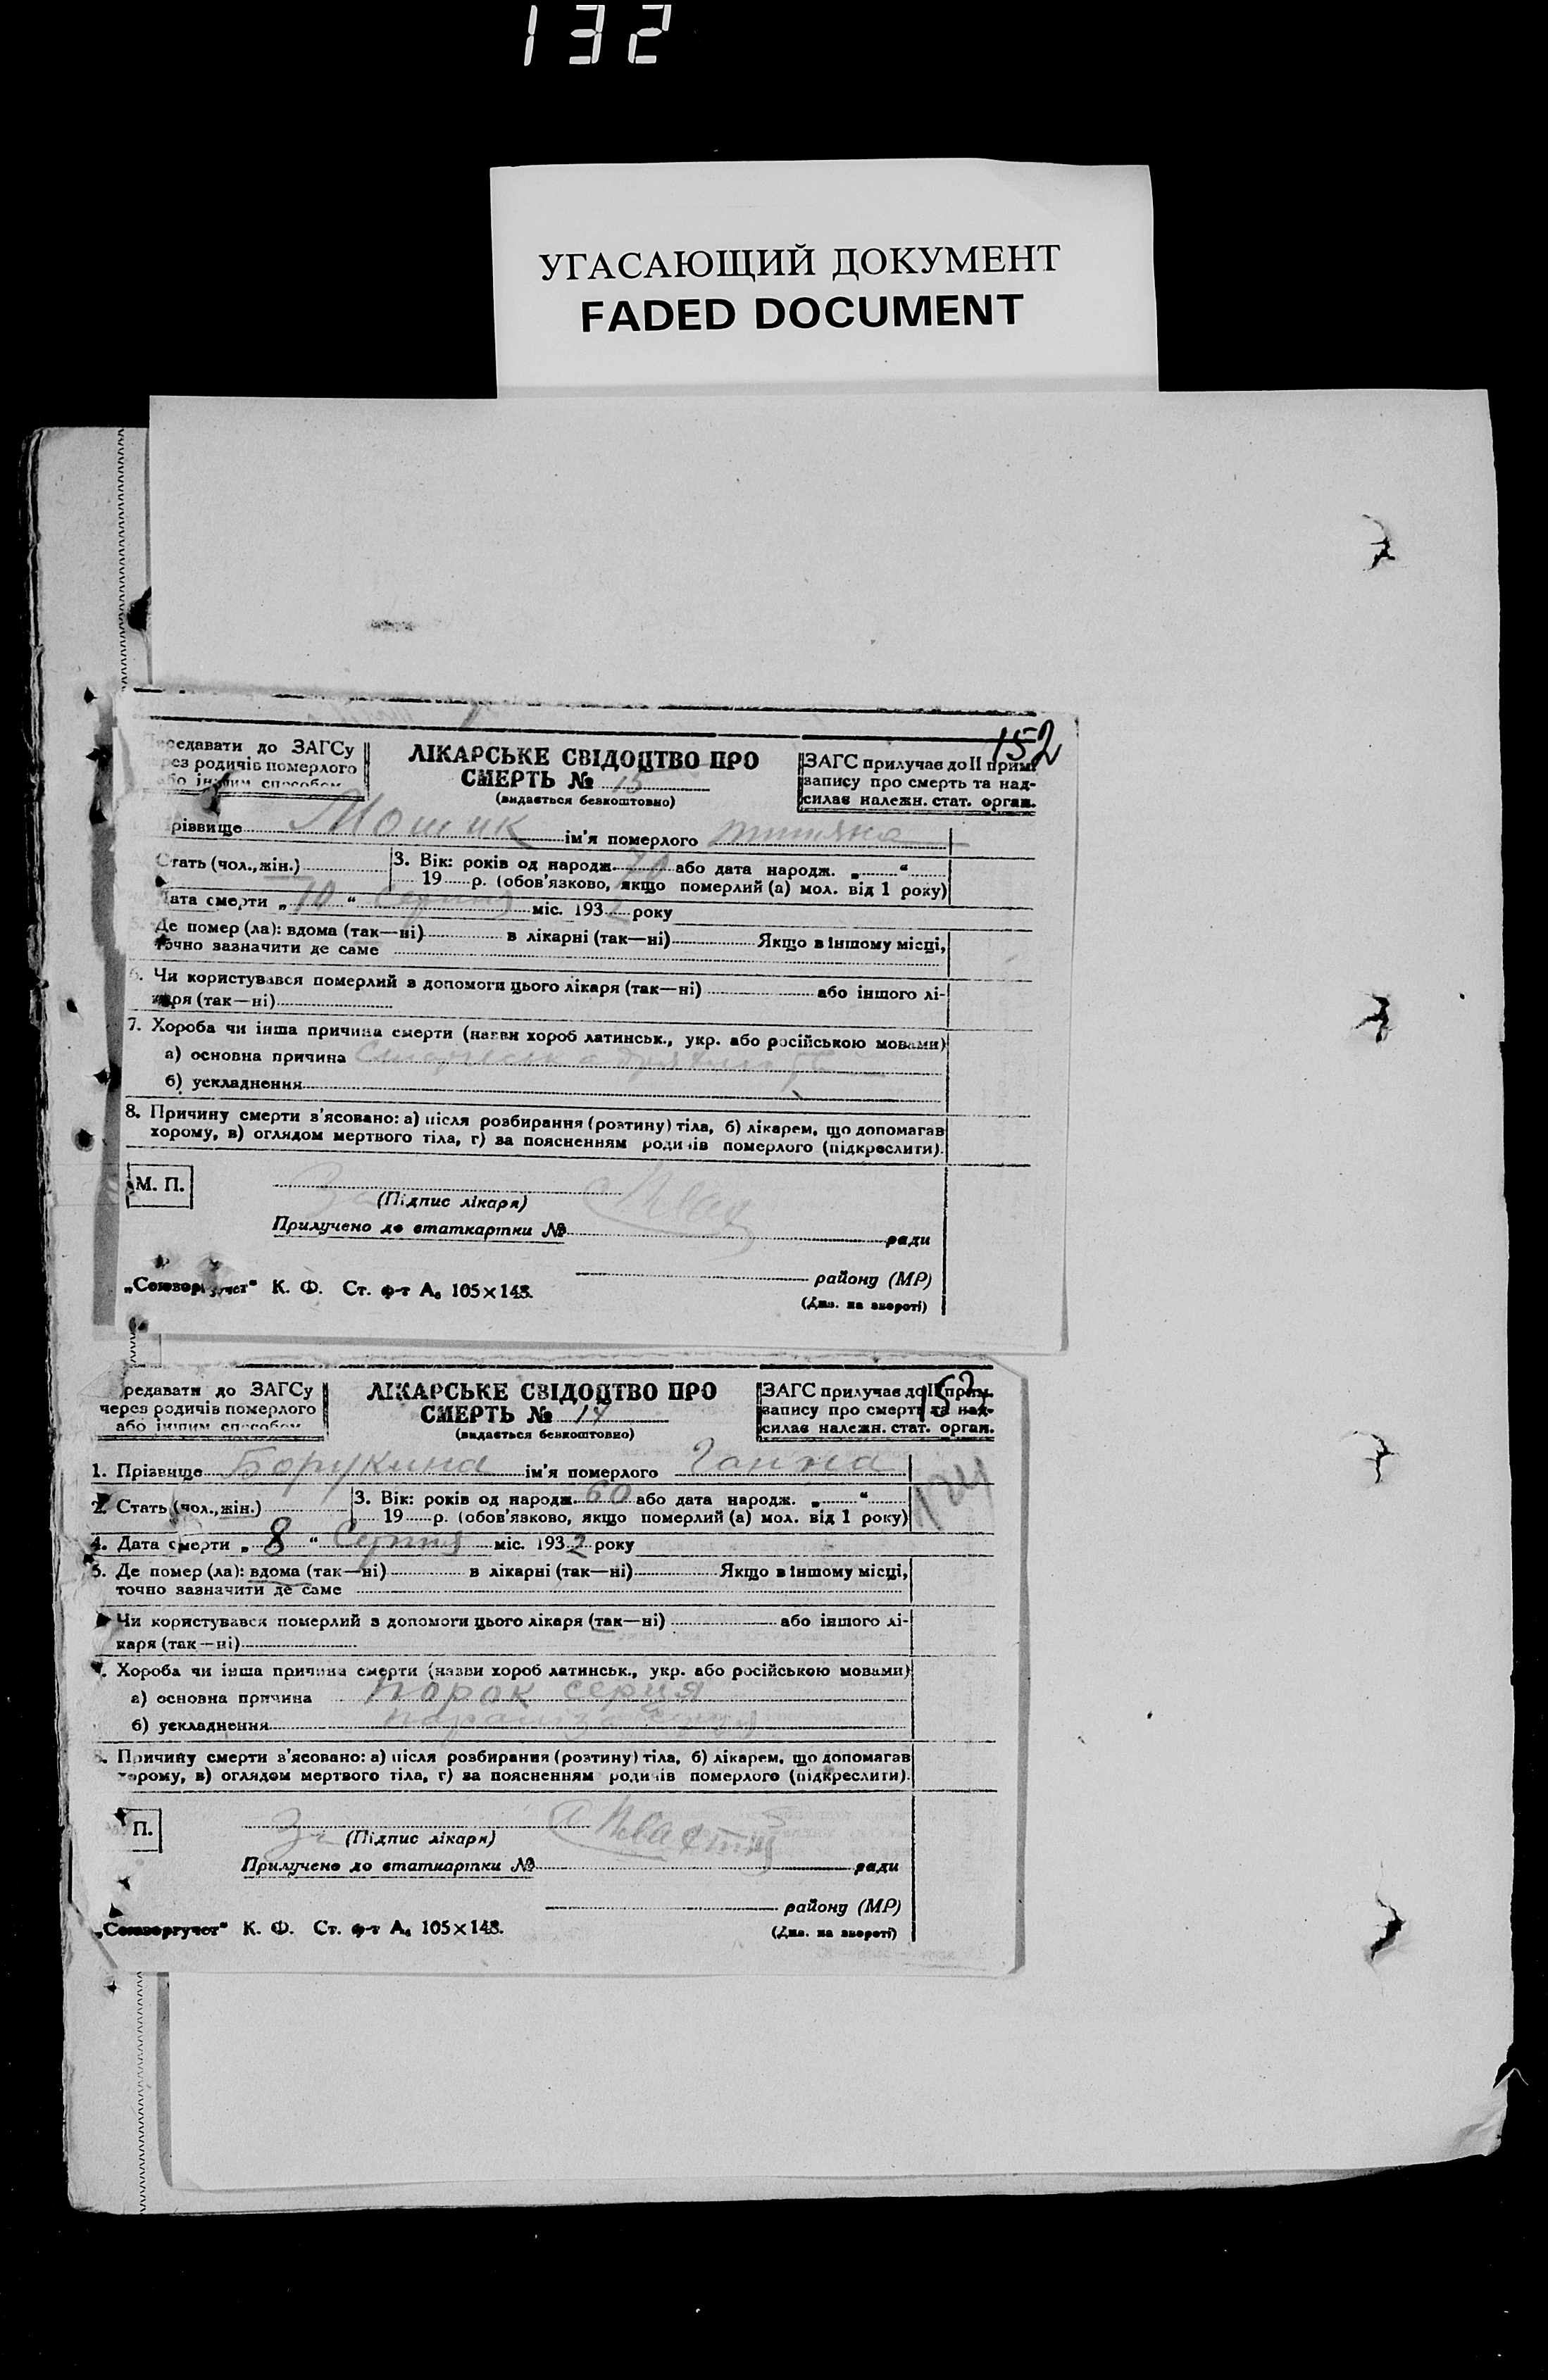 132
УГАСАЮЩИЙ ДОКУМЕНТ
FADED DOCUMENT
152
редавати до ЗАГСу
рез родичів померлого
бо іншим способом
ЛІКАРСЬКЕ СВІДОЦТВО ПРО
СМЕРТЬ № 15
(видається безкоштовно)
ЗАГС прилучає до II прим.
запису про смерть та над-
силає належн. стат. орган.
різвище Мошик ім'я померлого
Стать (чол., жін.)
3. Вік: років од народж. 70 або дата народж. „ “
19 р. (обов'язково, якщо померлий (а) мол. від 1 року)
Дата смерти „ 10 “ Серпня міс. 1932 року
Де помер (ла): вдома (так—ні) в лікарні (так—ні) Якщо в іншому місці,
точно зазначити де саме
6. Чи користувався померлий з допомоги цього лікаря (так—ні) або іншого лі-
каря (так—ні)
7. Хороба чи інша причина смерти (назви хороб латинськ., укр. або російською мовами)
а) основна причина
б) ускладнення
8. Причину смерти з'ясовано: а) після розбирання (розтину) тіла, б) лікарем, що допомагав
хорому, в) оглядом мертвого тіла, г) за поясненням родичів померлого (підкреслити).
М. П.
За
(Підпис лікаря)
Прилучено до статкартки № ради
району (МР)
„Союзоргучет“ К. Ф. Ст. ф-т А₆ 105×148.
(Див. на звороті)
редавати до ЗАГСу
через родичів померлого
або іншим способом
ЛІКАРСЬКЕ СВІДОЦТВО ПРО
СМЕРТЬ № 14
(видається безкоштовно)
ЗАГС прилучає до II прим.
запису про смерть та над-
силає належн. стат. орган.
1. Прізвище Борукина ім'я померлого Ганна
2. Стать (чол., жін.)
3. Вік: років од народж. 60 або дата народж. „ “
19 р. (обов'язково, якщо померлий (а) мол. від 1 року)
4. Дата смерти „ 8 “ Серпня міс. 1932 року
5. Де помер (ла): вдома (так—ні) в лікарні (так—ні) Якщо в іншому місці,
точно зазначити де саме
Чи користувався померлий з допомоги цього лікаря (так—ні) або іншого лі-
каря (так—ні)
Хороба чи інша причина смерти (назви хороб латинськ., укр. або російською мовами)
а) основна причина порок серця
б) ускладнення параліз серця
8. Причину смерти з'ясовано: а) після розбирання (розтину) тіла, б) лікарем, що допомагав
хорому, в) оглядом мертвого тіла, г) за поясненням родичів померлого (підкреслити).
П.
За
(Підпис лікаря)
Прилучено до статкартки № ради
району (МР)
„Союзоргучет“ К. Ф. Ст. ф-т А₆ 105×148.
(Див. на звороті)